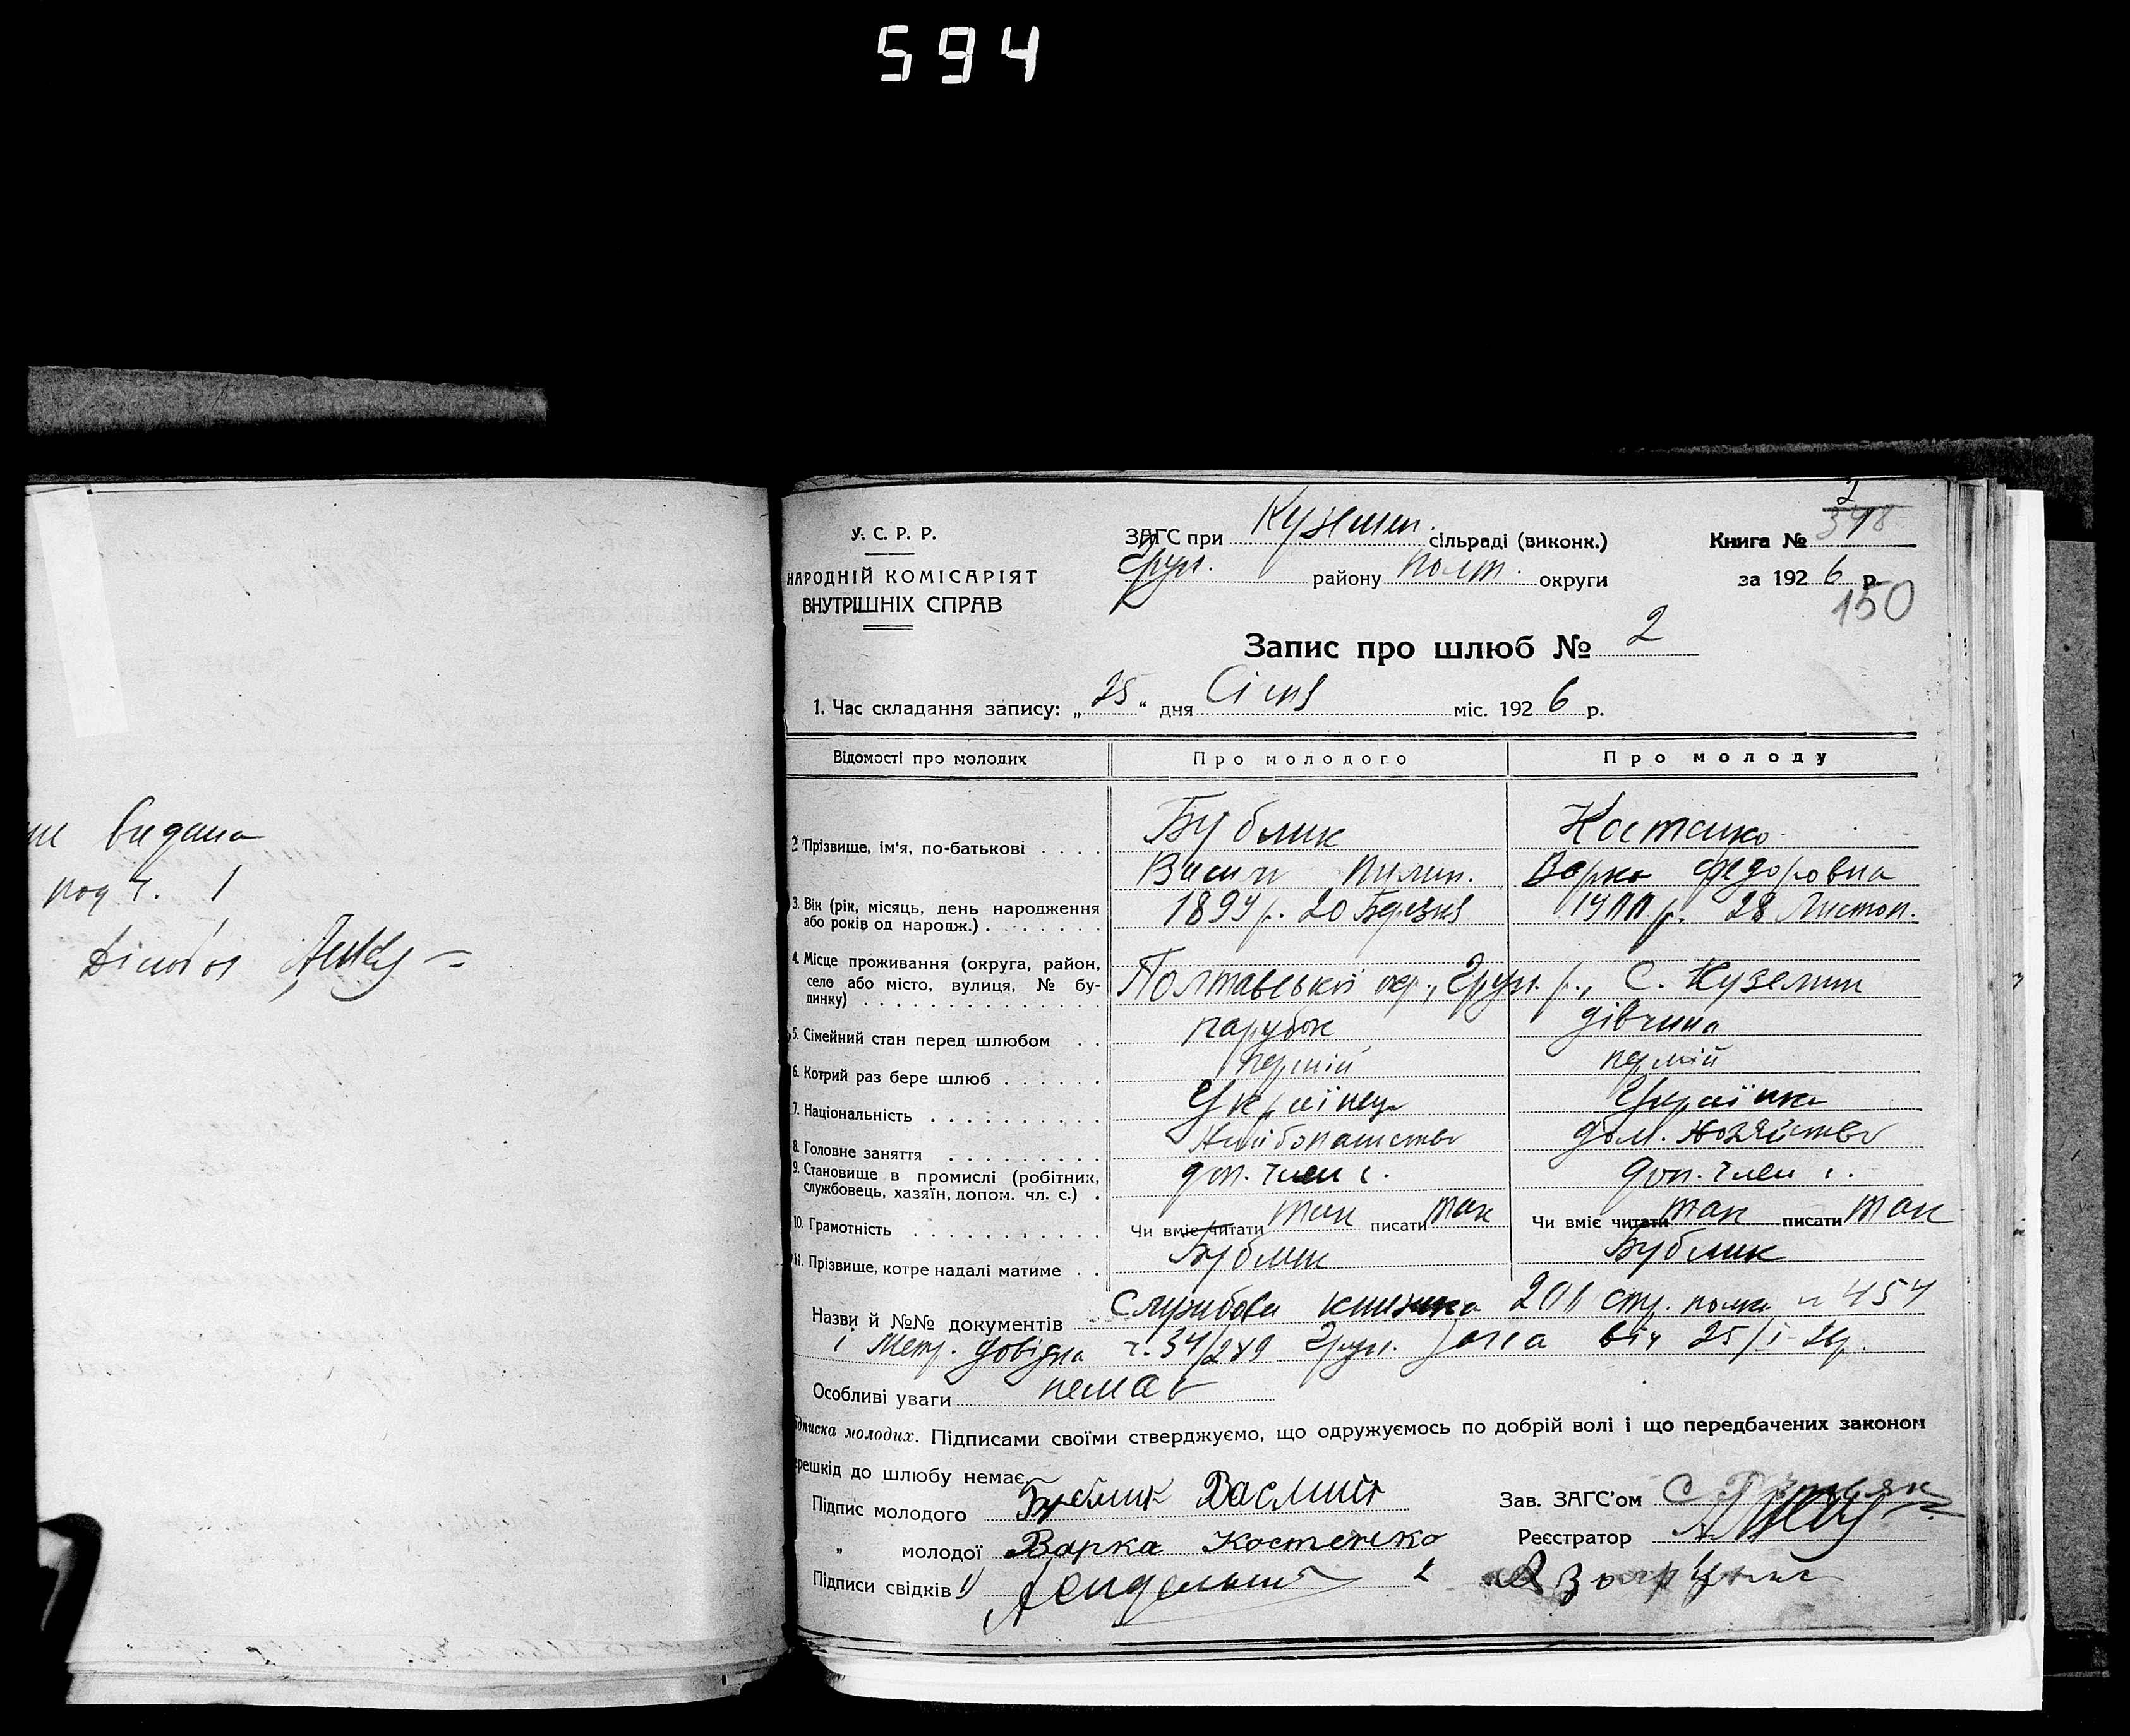 594
видана
под ч. 1
У. С. Р. Р.
НАРОДНІЙ КОМІСАРІЯТ
ВНУТРІШНІХ СПРАВ
ЗАГС при Куземен. сільраді (виконк.)
Грун. району Полт. округи
2
Книга № 348
за 1926 р.
150
Запис про шлюб № 2
1. Час складання запису: „25“ дня Січня міс. 1926 р.
Відомості про молодих Про молодого Про молоду
2. Прізвище, ім'я, по-батькові . . . . Бублик Костенко
Васил Пилип. Варка Федоровна
3. Вік (рік, місяць, день народження або років од народж.) . . . . . . . 1899 р. 20 Березня 1900 р. 28 Листоп.
4. Місце проживання (округа, район, село або місто, вулиця, № будинку) . . . . . . . . . . . . Полтавської окр., Грун. р., С. Куземин
5. Сімейний стан перед шлюбом . . парубок дівчина
6. Котрий раз бере шлюб . . . . . . перший перший
7. Національність . . . . . . . . . . Українець Українка
8. Головне заняття . . . . . . . . . Хлібопашество дом. хозяйство
9. Становище в промислі (робітник, службовець, хазяїн, допом. чл. с.) . доп. член с. доп. член с.
10. Грамотність . . . . . . . . . . . Чи вміє читати так писати так Чи вміє читати так писати так
11. Прізвище, котре надалі матиме . . Бублик Бублик
Назви й №№ документів Службова книжка 201 стр. полка № 454
і метр. довідка ч. 34/289 Грун. Загса від 25/I-26р.
Особливі уваги немає
ідписка молодих. Підписами своїми стверджуємо, що одружуємось по добрій волі і що передбачених законом
ерешкід до шлюбу немає.
Підпис молодого Бублик Василий Зав. ЗАГС'ом
„ молодої Варка Костенко Реєстратор
Підписи свідків 1) 2